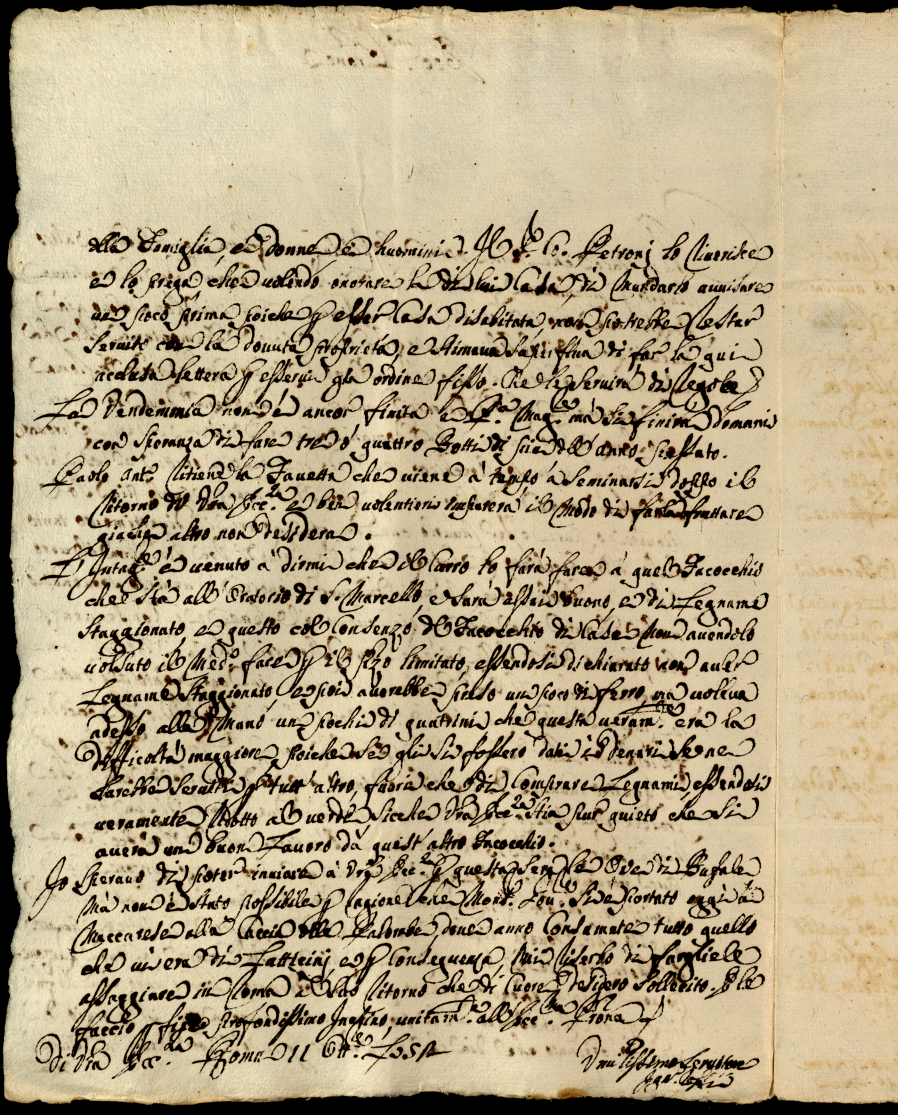 della Famiglia, e donne e huomini. Il S.r Co. Petronj lo riverisce
e lo prega che volendo onorare la di lui Casa, di mandarlo avvisare
un poco prima poiche p esser Casa disabitata, non potrebbe restar
servito con la dovuta proprietà, e stimava superflua di far la qui
acclusa lettera p esservi già ordine fisso. Che le servirà di regola
La Vendemmia non è ancor finita ma si finirà domani
con speranza di fare tre ò quattro Botti di più dell anno passato.
Paolo Ant.o ritiene la Favetta che viene à tempo à seminarsi doppo il
ritorno di Vra Ecc.za e ben volentieri imparerà il modo di farla fruttare
giache altro non desidera.
è venuto à dirmi che il Carro lo farà fare à quel Facocchio
che stà all Oratorio di S. Marcello, e sarà assai buono, e di Legname
staggionato, e questo col consenzo del Facocchio di Casa non avendolo
voluto il Med.o fare p il pzo limitato, essendosi dichiarato non aver
Legname staggionato e poi averebbe preso un poco di ferro, ma voleva
adesso alla mano un pochi di quatrini che questa veram.te era la
difficoltà maggiore poiche se gli si fossero dati i denari se ne
sarebbe servito p tutt altro, fuori che di comprare Legnami, essendosi
veramente ridotto al verde siche Vra Ecc.za stia pur quieto che si
averà un buon Lavoro dà quest altro Facocchio.
Io speravo di poter inviare à Vra Ecc.za p questa sera le Ova di Bufala
Mà non è stato possibile p cagione che Mons.r si è portato oggi à
Maccarese alla Caccia delle Palombe, dove anno consumate tutto quello
che vi era di Latticinj e p conseguenza mi riserbo di farglele
assaggiare in Roma al suo ritorno che di cuore desidero sollecito. E le
faccio p fine profondissimo Inchino, unitam.te all Ecc.ma Prona
Di Vra Ecc.za Roma 11 Ott.e